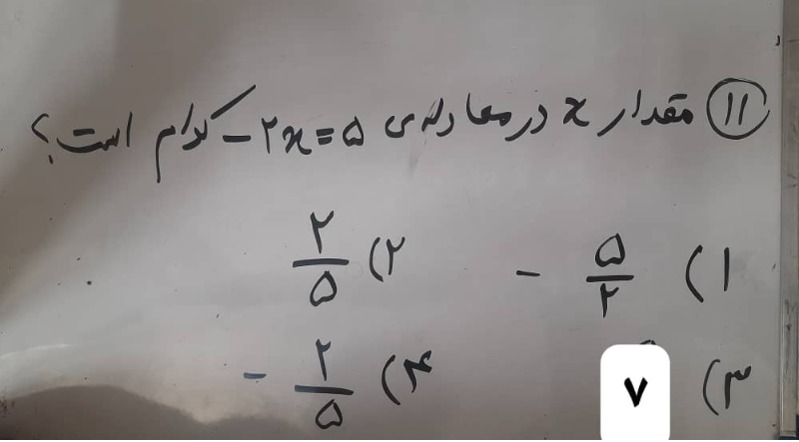 ۱۱ مقدار x در معادله‌ی -۲x=۵ کدام است؟
۱) -۵/۲ ۲) ۲/۵
۳) ۷ ۴) -۲/۵